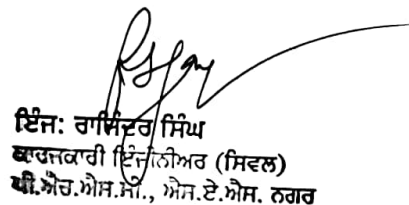 ਇੰਜ: ਰਾਜਿੰਦਰ ਸਿੰਘ
ਕਾਰਜਕਾਰੀ ਇੰਜੀਨੀਅਰ (ਸਿਵਲ)
ਪੀ.ਐਚ.ਐਸ.ਸੀ., ਐਸ.ਏ.ਐਸ. ਨਗਰ